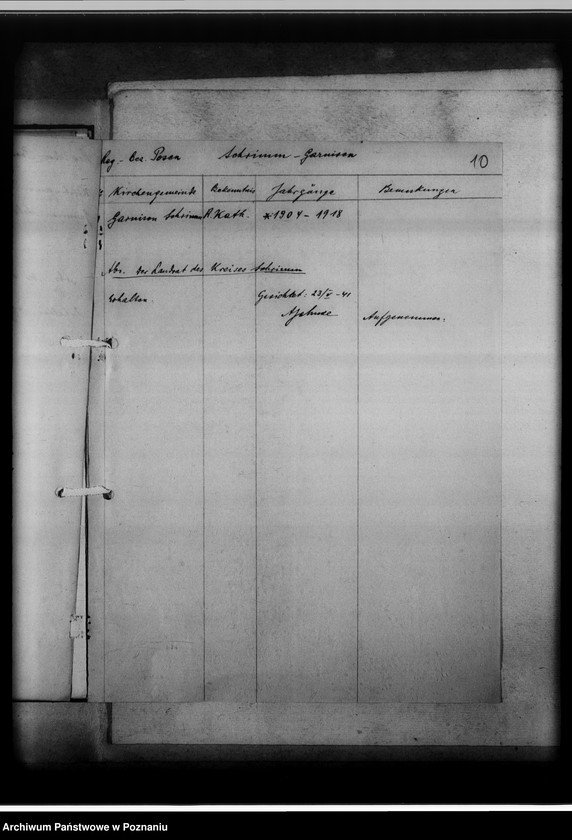 Reg.-Bez. Posen Schrimm-Garnison 10
Kirchengemeinde Bekenntnis Jahrgänge Bemerkungen
Garnison Schrimm R. Kath. *1904-1918
Abs. der Landrat des Kreises Schrimm
Erhalten. Gesichtet: 23/V-41
Aufgenommen.
Archiwum Państwowe w Poznaniu